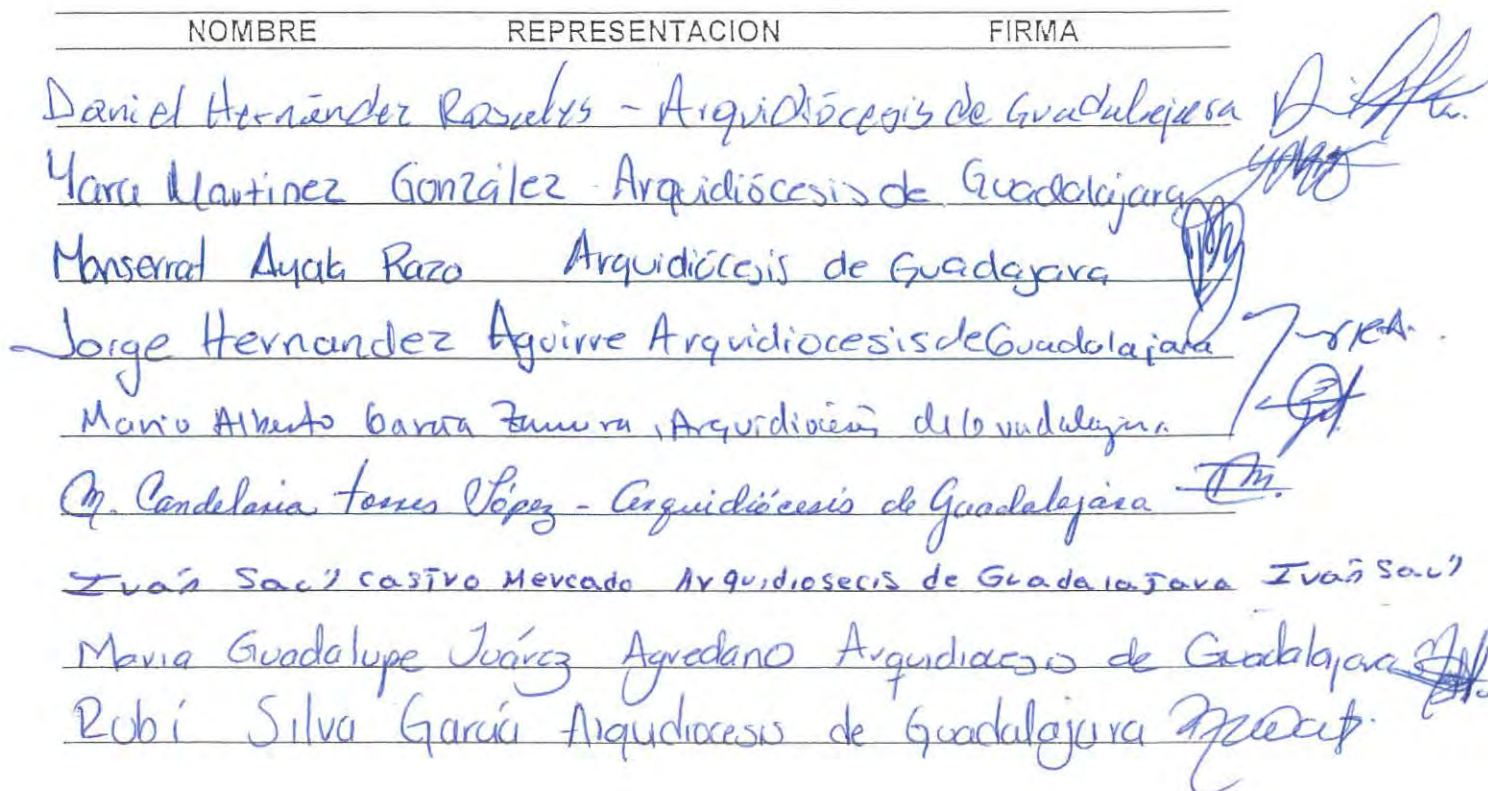 NOMBRE REPRESENTACION FIRMA
Daniel Hernández Rosales - Arquidiócesis de Guadalajara
Yara Martinez González Arquidiócesis de Guadalajara
Monserrat Ayala Razo Arquidiócesis de Guadajara
Jorge Hernandez Aguirre Arquidiocesis de Guadalajara
Mario Alberto García Zamora, Arquidiócesis de Guadalajara
M. Candelaria Torres López - Arquidiócesis de Guadalajara
Iván Saúl Castro Mercado Arquidiosecis de Guadalajara Iván Saúl
Maria Guadalupe Juárez Agredano Arquidiocesis de Guadalajara
Rubí Silva García Arqudiocesis de Guadalajara